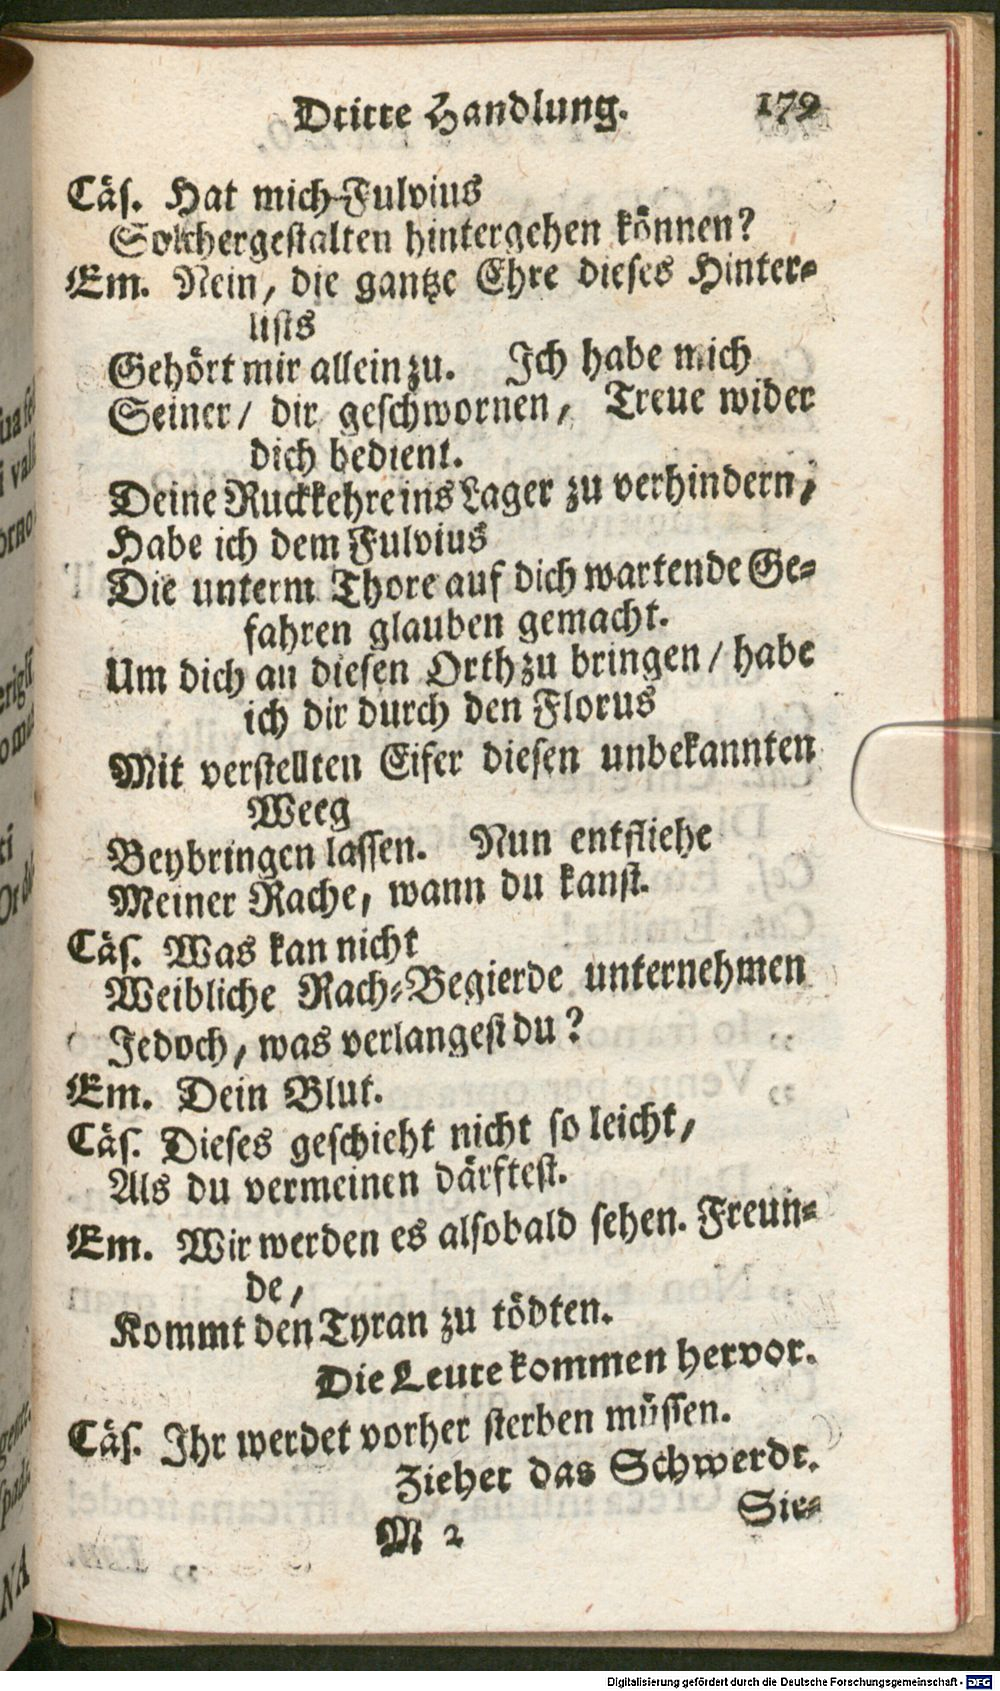 Dritte Handlung. 179
Cäs. Hat mich Fulvius
Solchergestalten hintergehen können?
Em. Nein, die gantze Ehre dieses Hinter-
lists
Gehört mir allein zu. Ich habe mich
Seiner / dir geschwornen, Treue wider
dich bedient.
Deine Ruckkehre ins Lager zu verhindern,
Habe ich dem Fulvius
Die unterm Thore auf dich wartende Ge-
fahren glauben gemacht.
Um dich an diesen Orth zu bringen / habe
ich dir durch den Florus
Mit verstellten Eifer diesen unbekannten
Weeg
Beybringen lassen. Nun entfliehe
Meiner Rache, wann du kanst.
Cäs. Was kan nicht
Weibliche Rach-Begierde unternehmen
Jedoch, was verlangest du?
Em. Dein Blut.
Cäs. Dieses geschieht nicht so leicht,
Als du vermeinen därftest.
Em. Wir werden es alsobald sehen. Freun-
de,
Kommt den Tyran zu tödten.
Die Leute kommen hervor.
Cäs. Ihr werdet vorher sterben müssen.
Ziehet das Schwerdt.
M 2 Sie-
Digitalisierung gefördert durch die Deutsche Forschungsgemeinschaft - DFG